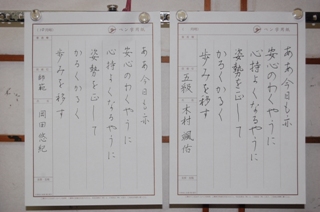 ああ今日も亦
安心のわくやうに
心持よくなるやうに
姿勢を正して
かろくかるく
歩みを移す
師範
岡田悠紀
ああ今日も亦
安心のわくやうに
心持よくなるやうに
姿勢を正して
かろくかるく
歩みを移す
五級
木村颯佑